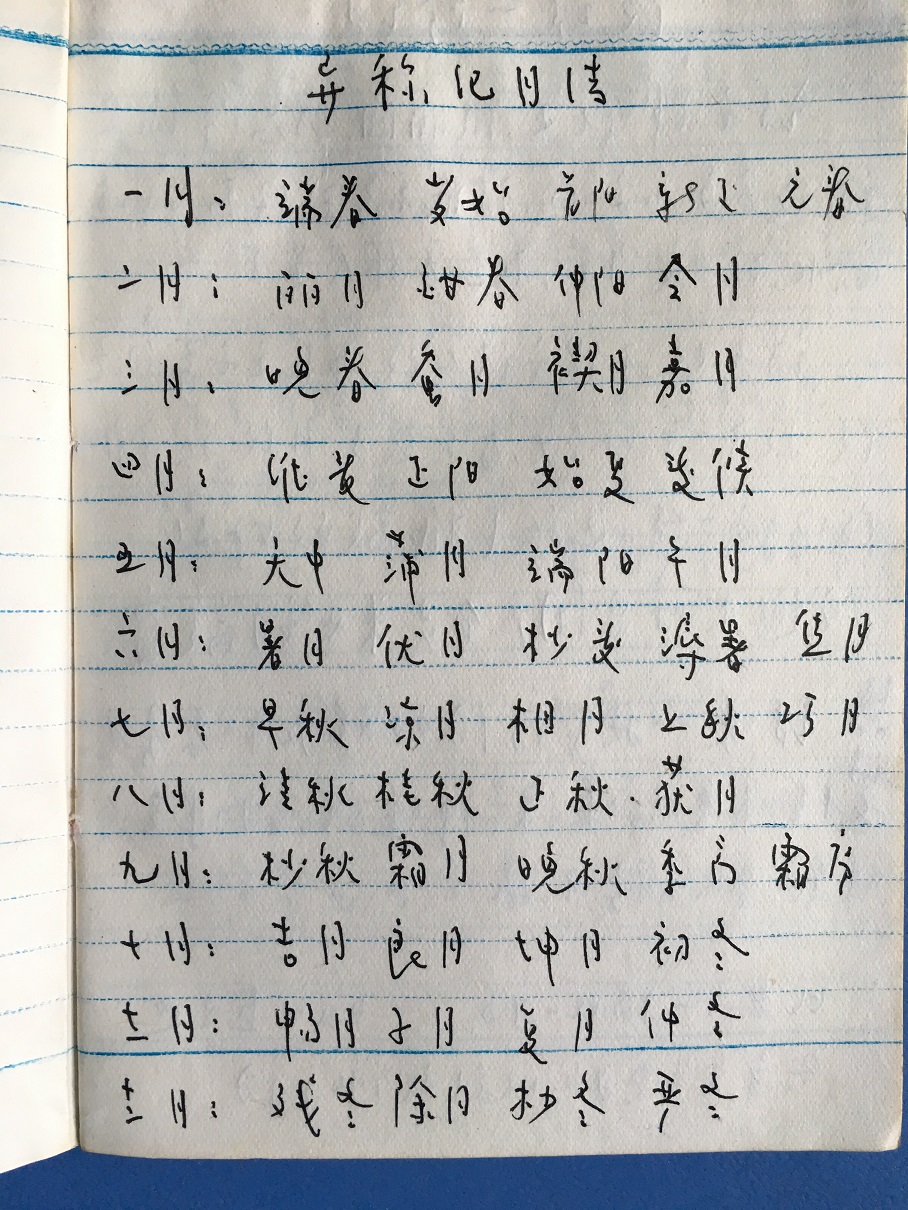 异称记月情
一月：端春 岁始 初阳 新正 元春
二月：丽月 酣春 仲阳 令月
三月：晚春 蚕月 禊月 嘉月
四月：维夏 正阳 始夏 夏候
五月：天中 蒲月 端阳 午月
六月：暑月 伏月 杪夏 溽暑 且月
七月：早秋 凉月 相月 上秋 巧月
八月：清秋 桂秋 正秋 获月
九月：杪秋 霜月 晚秋 季 霜序
十月：吉月 良月 坤月 初冬
十一月：畅月 子月 复月 仲冬
十二月：残冬 除月 杪冬 严冬